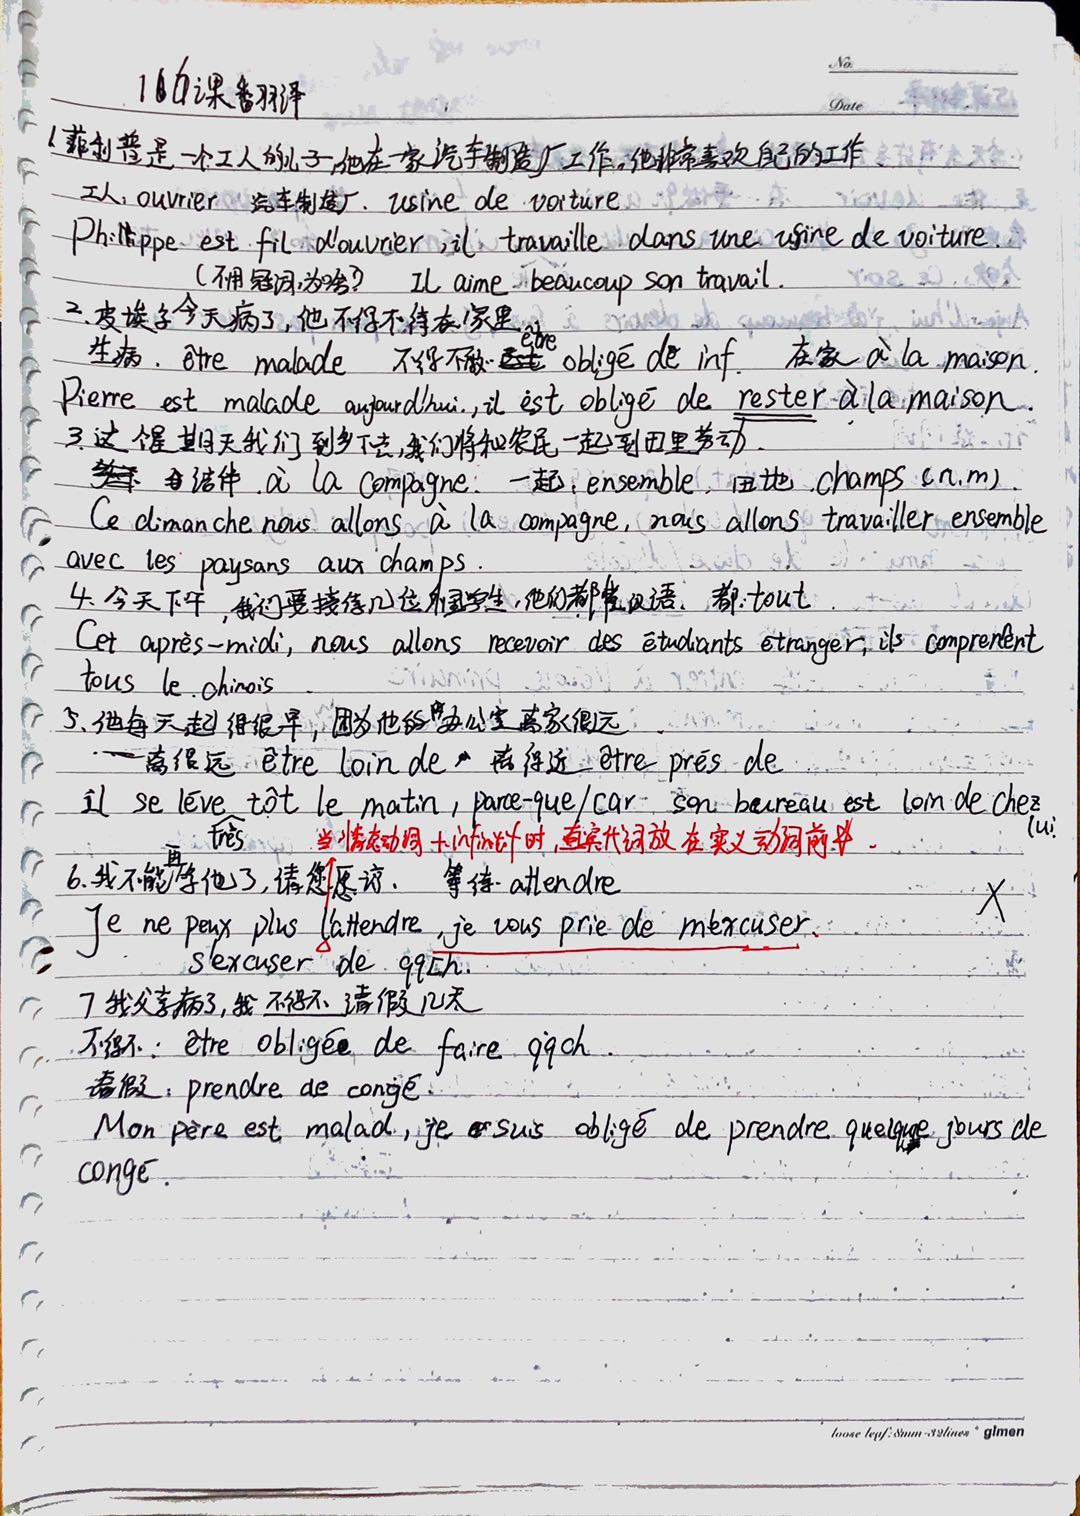 No.
Date
课翻译
1. 菲利普是一个工人的儿子,他在一家汽车制造厂工作。他非常喜欢自己的工作
工人: ouvrier 汽车制造厂. usine de voiture
Philippe est fil d'ouvrier, il travaille dans une usine de voiture.
(不用冠词,为啥?) Il aime beaucoup son travail.
2. 皮埃尔今天病了, 他不得不待在家里.
生病. être malade 不得不做. être obligé de inf. 在家 à la maison.
Pierre est malade aujourd'hui., il est obligé de rester à la maison.
3. 这个星期天我们到乡下去,我们将和农民一起到田里劳动.
à la compagne. 一起: ensemble. 田地. champs (n.m).
Ce dimanche nous allons à la compagne, nous allons travailler ensemble
avec les paysans aux champs.
4. 今天下午, 我们要接待几位外国学生, 他们都懂汉语. 都:tout
Cet après-midi, nous allons recevoir des étudiants étranger, ils comprenent
tous le chinois
5. 他每天起得很早, 因为他的办公室离家很远.
离很远 être loin de 离得近 être prés de
il se léve très tôt le matin, parce-que/car son baureau est loin de chez
lui
当情态动词 + infinitif 时, 直宾代词放在实义动词前.
6. 我不能再等他了, 请您原谅. 等待. attendre
Je ne peux plus l'attendre, je vous prie de m'excuser. X
s'excuser de qqch.
7 我父亲病了, 我不得不请假几天
不得不: être obligée de faire qqch.
请假: prendre de congé.
Mon père est malad, je suis obligé de prendre quelque jours de
congé.
loose leaf: 8mm-32lines * glmen